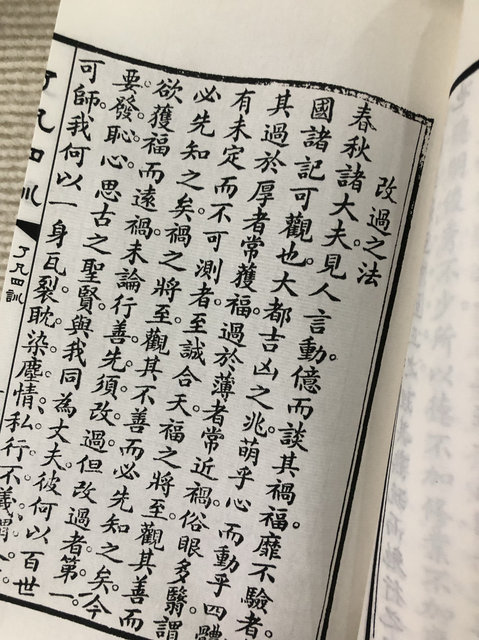 改過之法
春秋諸大夫見人言動。億而談其禍福。靡不驗者。
國諸記可觀也。大都吉凶之兆萌乎心而動乎四體
其過於厚者常獲福。過於薄者常近禍。俗眼多翳。謂
有未定而不可測者。至誠合天。福之將至。觀其善而
必先知之矣。禍之將至。觀其不善而必先知之矣。今
欲獲福而遠禍。未論行善。先須改過。但改過者。第一。
要發恥心。思古之聖賢。與我同為丈夫。彼何以百世
可師。我何以一身瓦裂。耽染塵情、私行不義。謂
了凡四訓